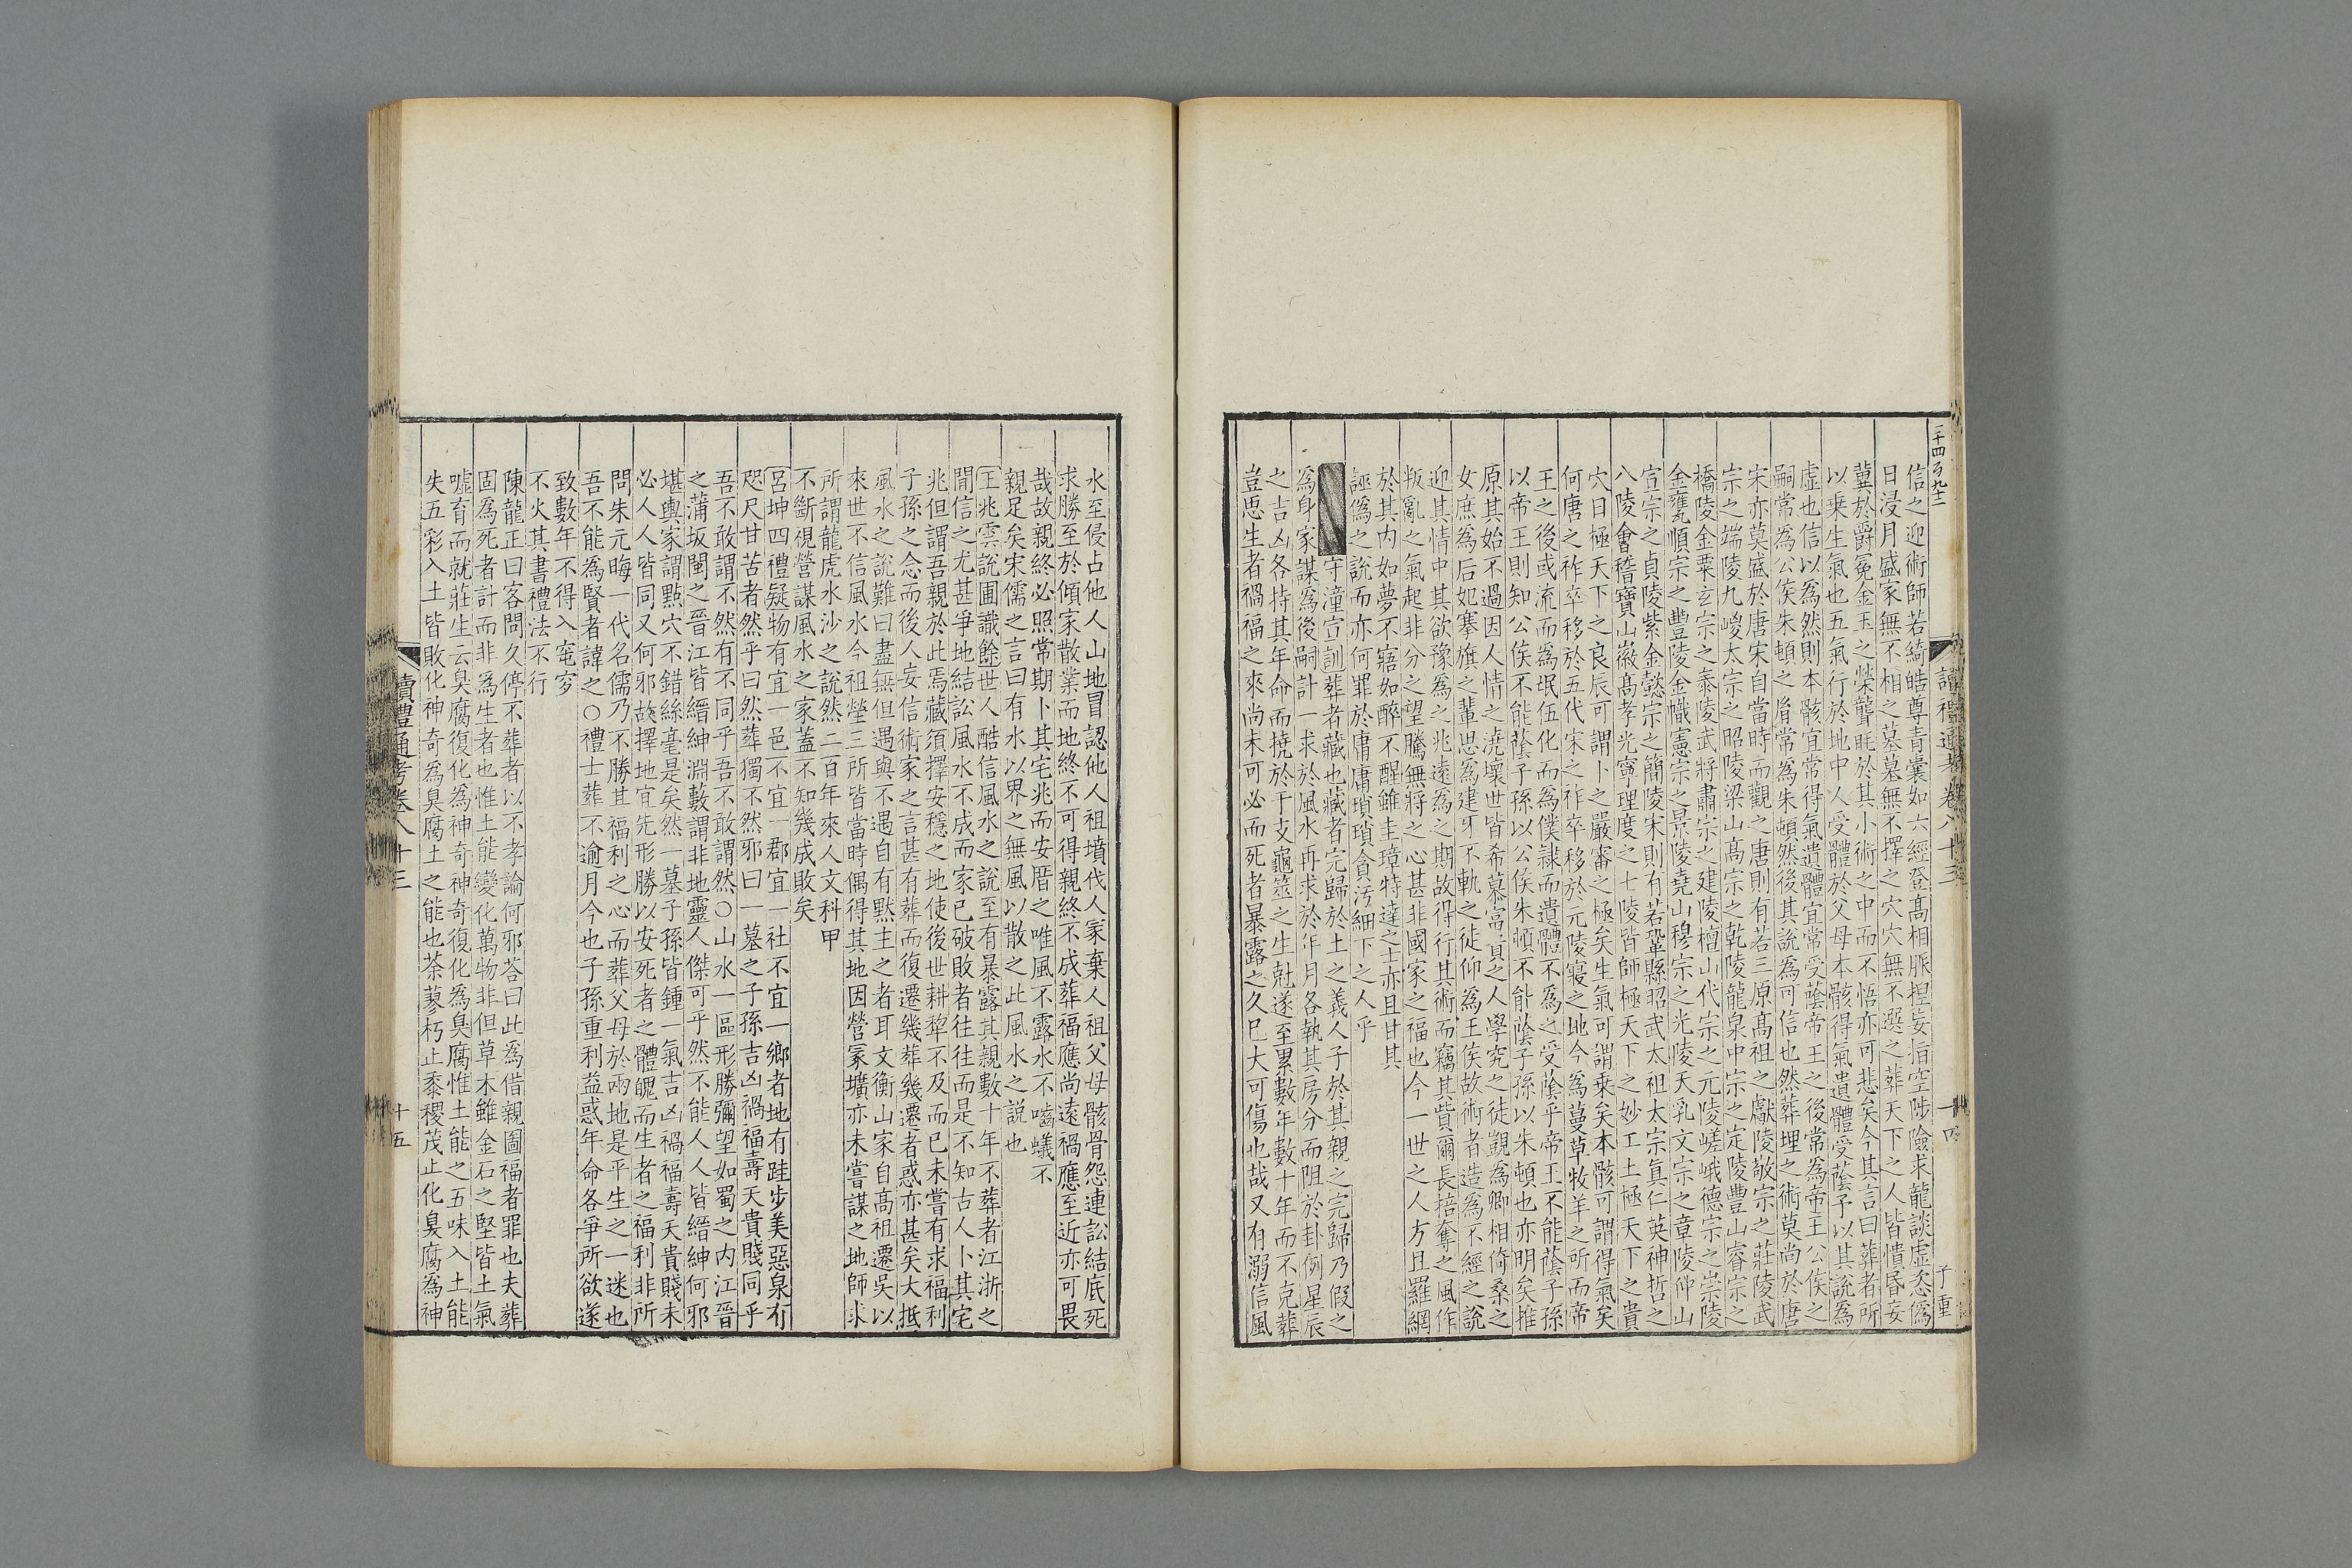 二千四百九十二
信之迎術師若綺皓尊青囊如六經登髙相脈捏妄指空陟險求龍談虛忞僞
日浸月盛家無不相之墓墓無不擇之穴穴無不選之葬天下之人皆憒㫺妄
冀於爵冕金玉之榮聾眊於其小術之中而不悟亦可悲矣今其言曰葬者所
以乗生氣也五氣行於地中人受體於父母本骸得氣遺體受蔭予以其説爲
虛也信以爲然則本骸宜常得氣遺體宜常受蔭帝王之後常爲帝王公侯之
嗣常爲公侯朱頓之胄常爲朱頓然後其説爲可信也然葬埋之術莫尚於唐
宋亦莫盛於唐宋自當時而觀之唐則有若三原髙祖之獻陵敬宗之莊陵武
宗之端陵九嵕太宗之昭陵梁山髙宗之乾陵龍泉中宗之定陵豐山睿宗之
橋陵金粟玄宗之泰陵武將肅宗之建陵檀山代宗之元陵嵯峨德宗之崇陵
金甕順宗之豐陵金幟憲宗之景陵堯山穆宗之光陵天乳文宗之章陵仲山
宣宗之貞陵紫金懿宗之簡陵宋則有若鞏縣昭武太祖太宗眞仁英神哲之
八陵會稽寶山徽髙孝光寧理度之七陵皆師極天下之妙工土極天下之貴
穴日極天下之良辰可謂卜之嚴審之極矣生氣可謂乗矣本骸可謂得氣矣
何唐之祚卒移於五代宋之祚卒移於元陵寢之地今爲蔓草牧羊之所而帝
王之後或流而爲氓伍化而爲僕隷而遺體不爲之受蔭乎帝王不能蔭子孫
以帝王則知公侯不能蔭子孫以公侯朱頓不能蔭子孫以朱頓也亦明矣推
原其始不過因人情之澆壞世皆希慕富貴之人學究之徒覬爲卿相倚桑之
女庶爲后妃搴旗之輩思爲建牙不軌之徒仰爲王侯故術者造爲不經之説
迎其情中其欲豫爲之兆逺爲之期故得行其術而竊其貲爾長掊奪之風作
叛亂之氣起非分之望騰無將之心甚非國家之福也今一世之人方且羅網
於其内如夢不寤如醉不醒雖圭璋特達之士亦且甘其
誣僞之説而亦何罪於庸庸瑣瑣貪汚細下之人乎
守潼宣訓葬者藏也藏者完歸於土之義人子於其親之完歸乃假之
爲身家謀爲後嗣計一求於風水再求於年月各執其房分而阻於卦例星辰
之吉凶各持其年命而撓於干支龜筮之生尅遂至累數年數十年而不克葬
豈思生者禍福之來尚未可必而死者暴露之久已大可傷也哉又有溺信風
讀禮通考卷八十三
十四
子重
水至侵占他人山地冒認他人祖墳伐人家棄人祖父母骸骨怨連訟結底死
求勝至於傾家散業而地終不可得親終不成葬福應尚遠禍應至近亦可畏
哉故親終必照常期卜其宅兆而安厝之唯風不露水不嚙蟻不
親足矣宋儒之言曰有水以界之無風以散之此風水之説也
王兆雲説圃識餘世人酷信風水之說至有暴露其親數十年不葬者江浙之
間信之尤甚爭地結訟風水不成而家已破敗者往往而是不知古人卜其宅
兆但謂吾親於此焉藏須擇安穩之地使後世耕犂不及而已未嘗有求福利
子孫之念而後人妄信術家之言甚有葬而復遷幾葬幾遷者惑亦甚矣大抵
風水之說難曰盡無但遇與不遇自有黙主之者耳文衡山家自髙祖遷吳以
來世不信風水今祖塋三所皆當時偶得其地因營冢壙亦未嘗謀之地師求
所謂龍虎水沙之說然二百年來人文科甲
不斷視營謀風水之家蓋不知幾成敗矣
呂坤四禮疑物有宜一邑不宜一郡宜一社不宜一鄉者地有跬步美惡泉有
咫尺甘苦者然乎曰然葬獨不然邪曰一墓之子孫吉凶禍福壽夭貴賤同乎
吾不敢謂不然有不同乎吾不敢謂然○山水一區形勝彌望如蜀之内江晉
之蒲坂閩之晉江皆縉紳淵藪謂非地靈人傑可乎然不能人人皆縉紳何邪
堪輿家謂㸃穴不錯絲毫是矣然一墓子孫皆鍾一氣吉凶禍福壽夭貴賤未
必人人皆同又何邪故擇地宜先形勝以安死者之體魄而生者之福利非所
問朱元晦一代名儒乃不勝其福利之心而葬父母於兩地是平生之一迷也
吾不能爲賢者諱之○禮士葬不逾月今也子孫重利益惑年命各爭所欲遂
致數年不得入窀穸
不火其書禮法不行
陳龍正曰客問久停不葬者以不孝論何邪荅曰此爲借親圖福者罪也夫葬
固爲死者計而非爲生者也惟土能變化萬物非但草木雖金石之堅皆土氣
噓育而就莊生云臭腐復化爲神奇神奇復化爲臭腐惟土能之五味入土能
失五彩入土皆敗化神奇爲臭腐土之能也荼蓼朽止黍稷茂止化臭腐爲神
讀禮通考卷八十三
十五